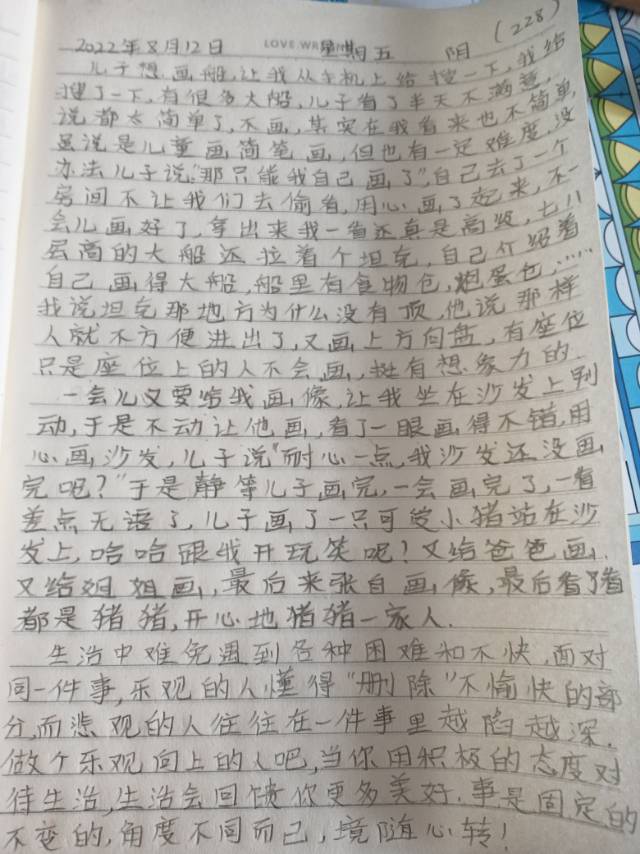 (228)
2022年8月12日 LOVE WR 星期五 阴
儿子想画船,让我从手机上给搜一下,我给
搜了一下,有很多大船,儿子看了半天不满意,
说都太简单了,不画,其实在我看来也不简单,
虽说是儿童画简笔画,但也有一定难度,没
办法儿子说:"那只能我自己画了",自己去了一个
房间不让我们去偷看,用心画了起来,不一
会儿画好了,拿出来我一看还真是高级,七八
层高的大船还拉着个坦克,自己介绍着
自己画得大船,船里有食物仓,炮蛋仓,……
我说坦克那地方为什么没有顶,他说那样
人就不方便进出了,又画上方向盘,有座位
只是座位上的人不会画,挺有想象力的.
一会儿又要给我画像,让我坐在沙发上别
动,于是不动让他画,看了一眼画得不错,用
心画沙发,儿子说"耐心一点,我沙发还没画
完吧?"于是静等儿子画完,一会画完了,一看
差点无语了,儿子画了一只可爱小猪站在沙
发上,哈哈跟我开玩笑呢!又给爸爸画.
又给姐姐画,最后来张自画像,最后看了看
都是猪猪,开心地猪猪一家人.
生活中难免遇到各种困难和不快,面对
同一件事,乐观的人懂得"删除"不愉快的部
分,而悲观的人往往在一件事里越陷越深.
做个乐观向上的人吧,当你用积极的态度对
待生活,生活会回馈你更多美好.事是固定的
不变的,角度不同而已,境随心转!